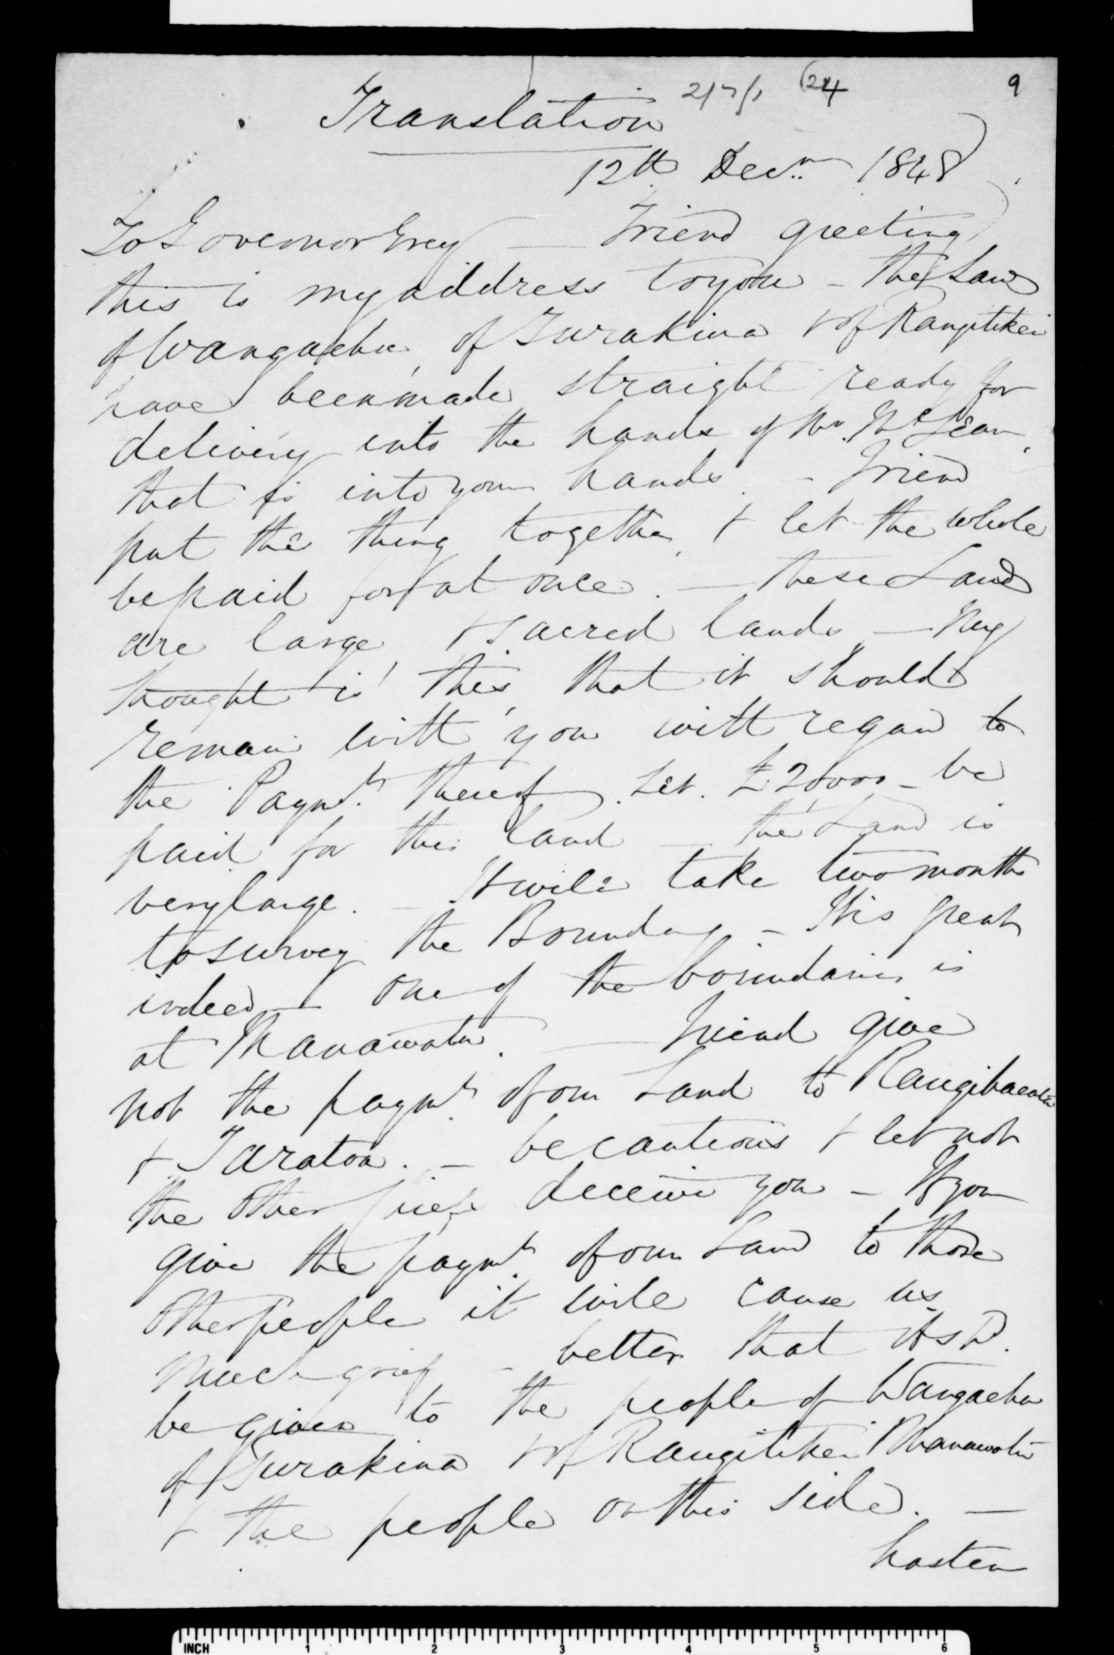 Translation
24
9
12th Decr. 1848
To Governor Grey — Friend greeting
this is my address to you - the Land
of Wangaehu, of Turakina & of Rangitikei
have been made straight ready for
delivery into the hands of Mr. McLean,
that is into your hands. - Friend
put the thing together, & let the whole
be paid for at once. — these Land
are large & sacred lands — My
thought is this, that it should
remain with you with regard to
the Paymt. thereof. Let £2000 - be
paid for this land — the Land is
very large. - It will take two months
to survey the Boundary - It is great
indeed - one of the boundaries is
at Manawatu. — friend give
not the paymt. of our Land to Rangihaeata
& Taratoa. - be cautious & let not
the other Chiefs deceive you - If you
give the paymt. of our Land to those
other people it will cause us
much grief - better that it shd.
be given to the people of Wangaehu
of Turakina & of Rangitikei Manawatu
& the people on this side. —
hasten
INCH 1 2 3 4 5 6